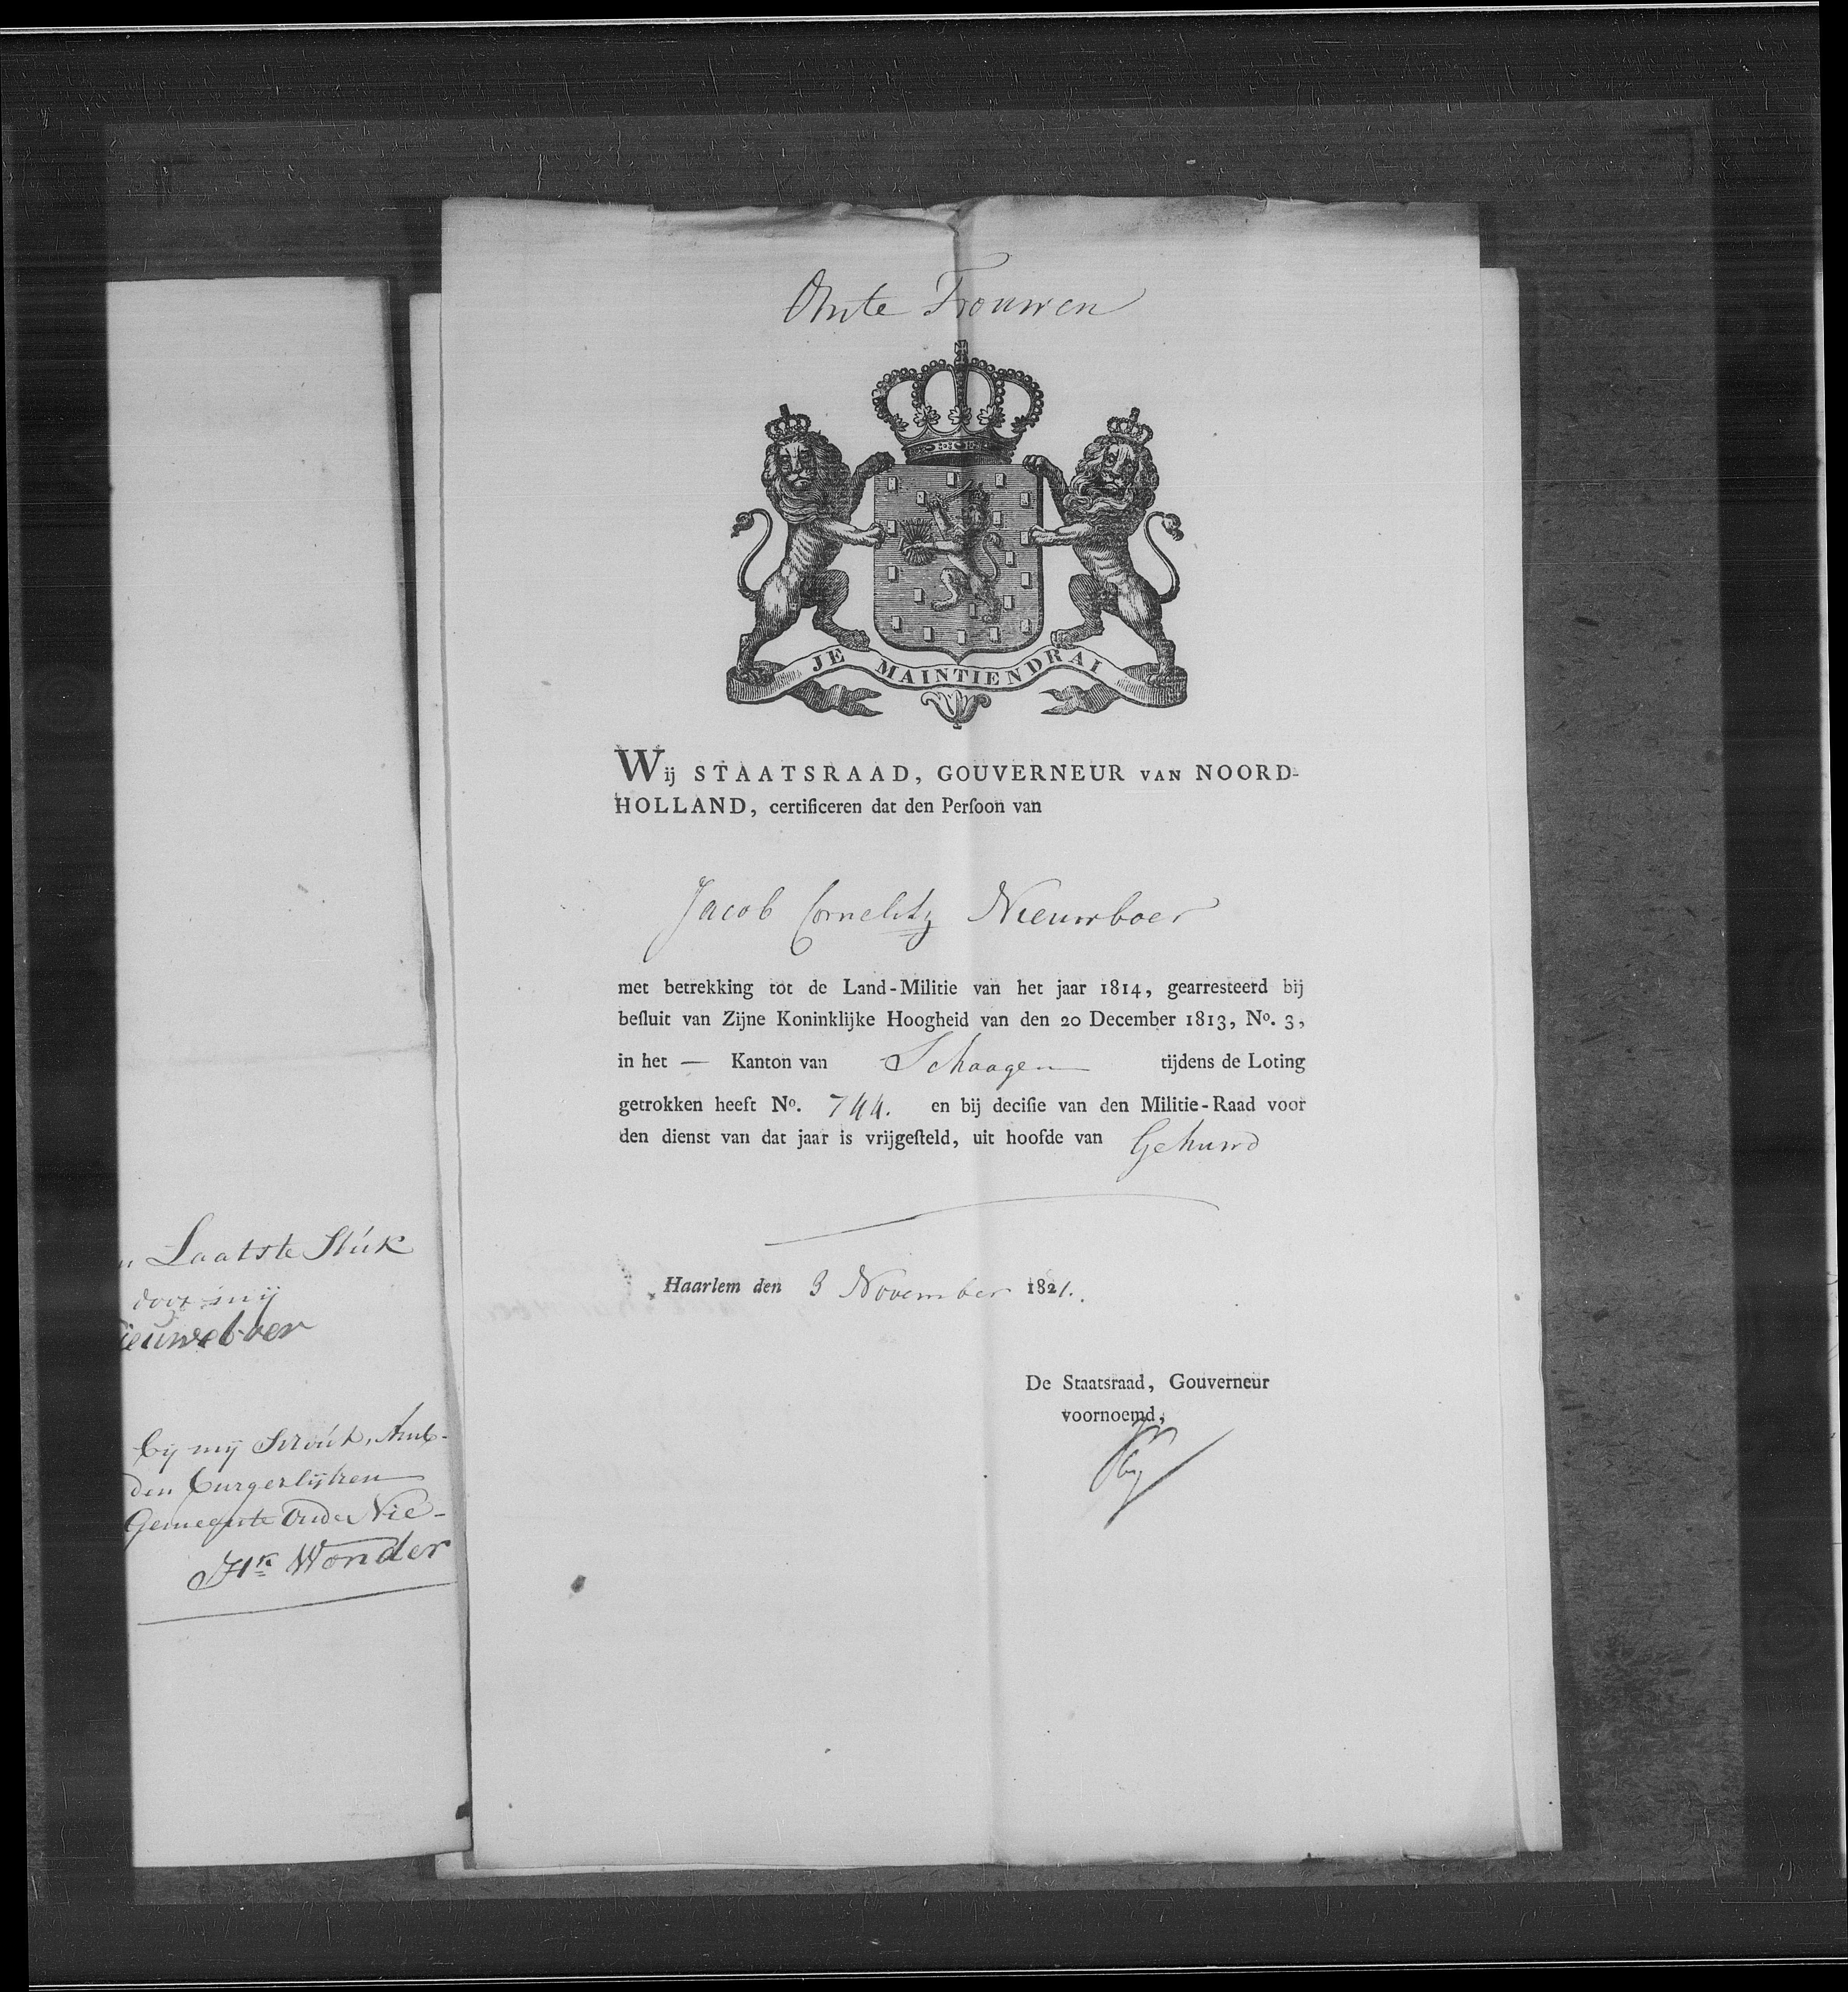 Omte Trouwen
JE MAINTIENDRAI
Wij STAATSRAAD, GOUVERNEUR VAN NOORD-
HOLLAND, certificeren dat den Perſoon van
Jacob Cornelisz Nieuwboer
met betrekking tot de Land-Militie van het jaar 1814, gearresteerd bij
beſluit van Zijne Koninklijke Hoogheid van den 20 December 1813, No. 3,
in het — Kanton van Schaagen tijdens de Loting
getrokken heeft No. 744. en bij deciſie van den Militie-Raad voor
den dienst van dat jaar is vrijgeſteld, uit hoofde van Gehuwd
Haarlem den 3 November 1821.
De Staatsraad, Gouverneur
voornoemd,
Laatste Stuk
door mij
ieuweboer
bij mij Schout, Amb-
den burgerlijken
Gemeente Oude Nie-
Hk Wonder